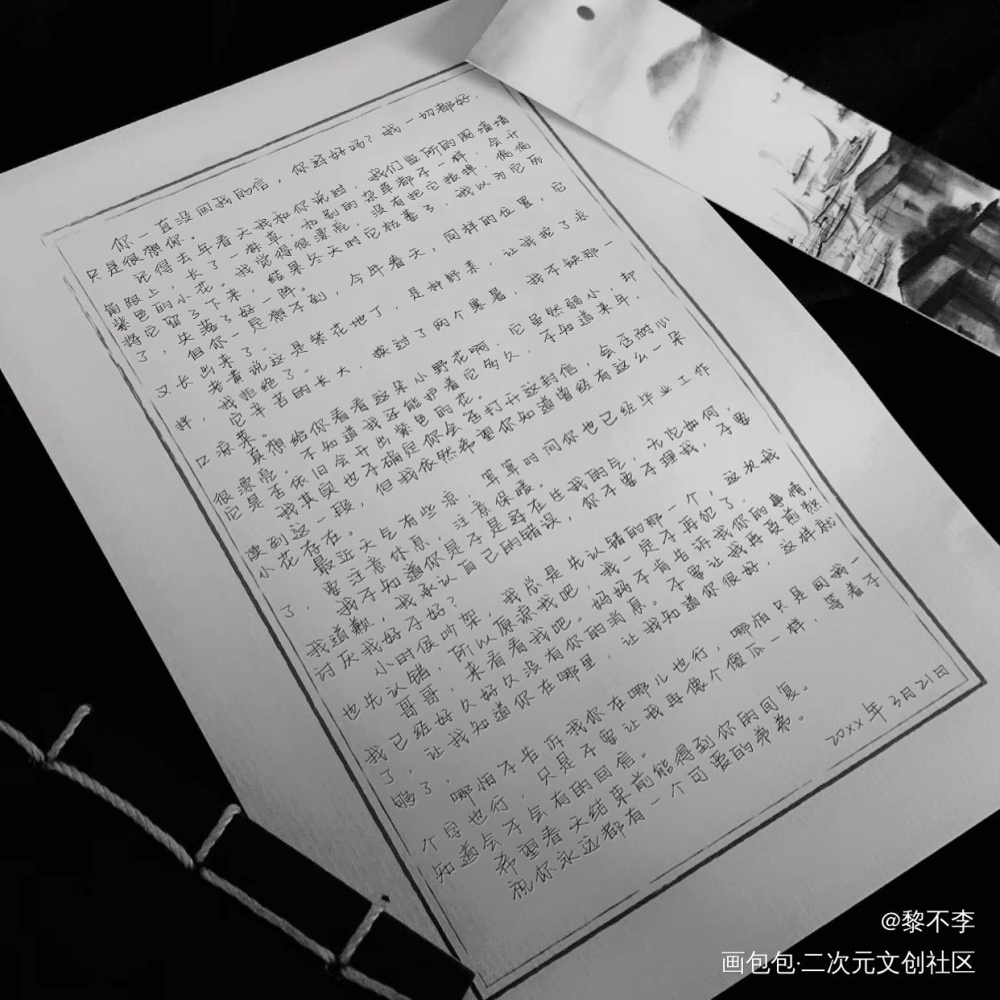 你一直没回我的信，你还好吗？我一切都好，
只是很想你。
记得去年春天我和你说过，我们监所的围墙墙
角跟上，长了一株草，和别的杂草都不一样，会开
紫色的小花。我觉得很漂亮，没有把它拔掉，偷偷
将它留了下来，结果冬天时它枯萎了，我以为它死
了，失落了好一阵。
但你一定想不到，今年春天，同样的位置，它
又长出来了。
老黄说这是紫花地丁，是种野菜，让我挖了凉
拌，我拒绝了。
它辛苦的长大，挨过了两个寒暑，我不缺那一
口凉菜。
真想给你看看这朵小野花啊，它虽然弱小，却
很漂亮，不知道我还能护着它多久，不知道来年，
它是否依旧会开出紫色的花。
我其实也不确定你会否打开这封信，会否耐心
读到这一段，但我依然希望你知道曾经有这么一朵
小花存在。
最近天气有些凉，算算时间你也已经毕业工作
了，要注意休息，注意保暖。
我不知道你是不是还在生我的气，无论如何，
我道歉，我承认自己的错误，你不要不理我，不要
讨厌我好不好？
小时候吵架，我总是先认错的那一个，这次我
也先认错，所以原谅我吧，我一定不再犯了。
哥哥，来看看我吧。妈妈不肯告诉我你的事情，
我已经好久好久没有你的消息。不要让我再受煎熬
了，让我知道你在哪里，让我知道你很好，这样就
够了，哪怕不告诉我你在哪儿也行，哪怕只是回我一
个字也行，只是不要让我再像个傻瓜一样，等着不
知道会不会有的回信。
希望春天结束前能得到你的回复。
祝你永远都有一个可爱的弟弟。
20xx年3月21日
@黎不李
画包包·二次元文创社区